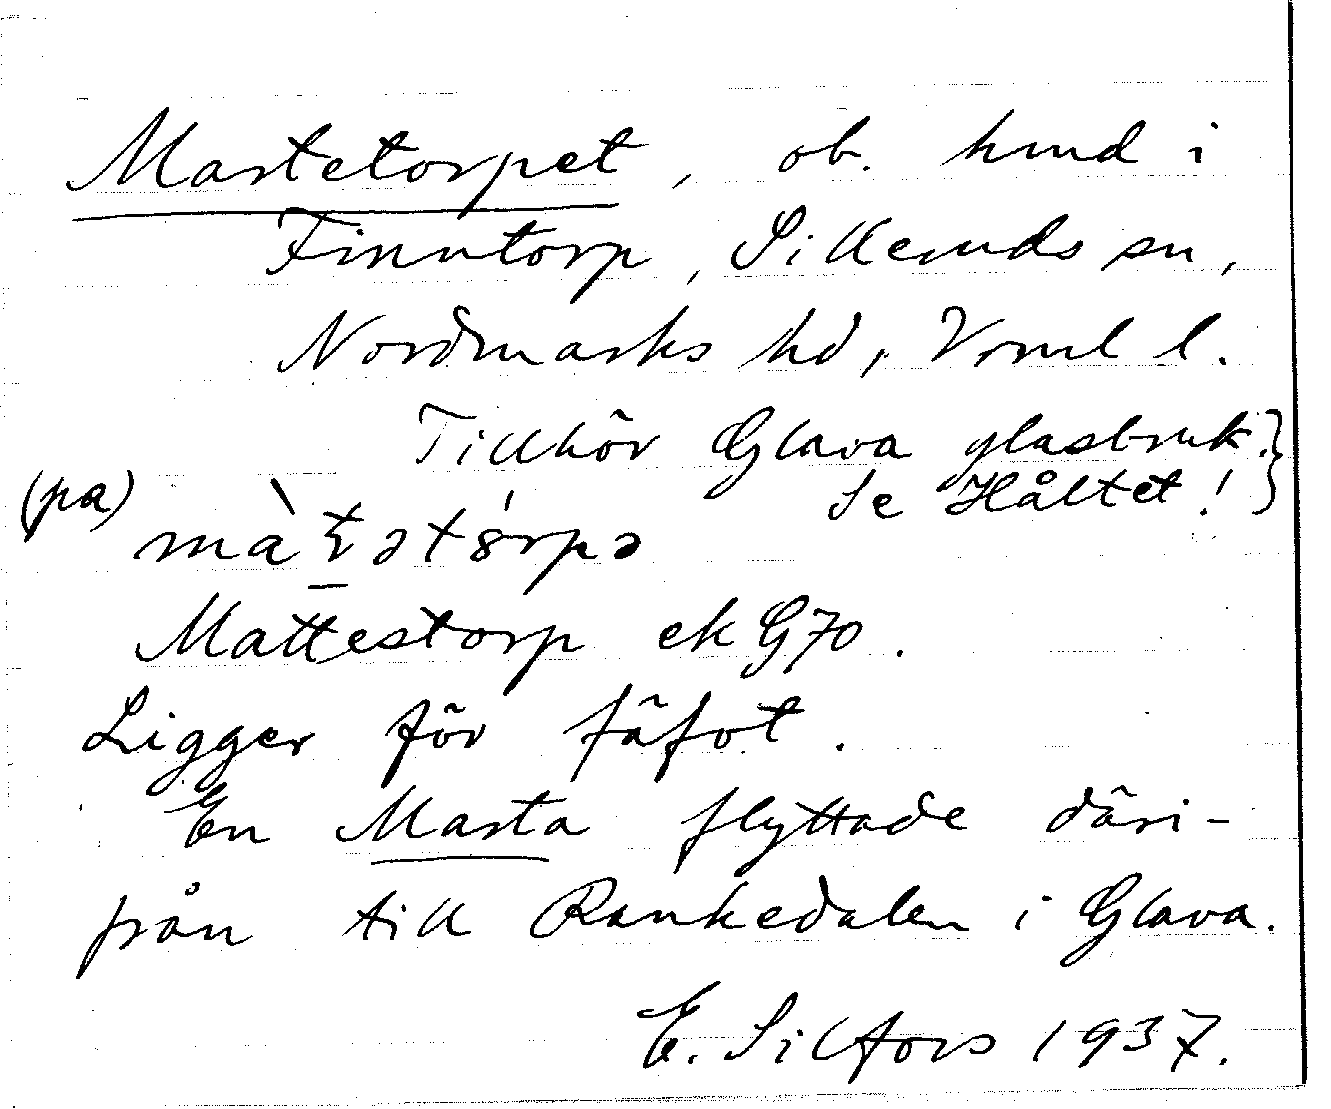 Martetorpet, ob. hmd i
Finntorp, Silleruds sn,
Nordmarks hd, Vrml l.
Tillhör Glava glasbruk.}
Se Håltet!}
(på)
Mattestorp ek G70.
Ligger för fäfot.
En Marta flyttade däri-
från till Rankedalen i Glava.
E. Silfors 1937.